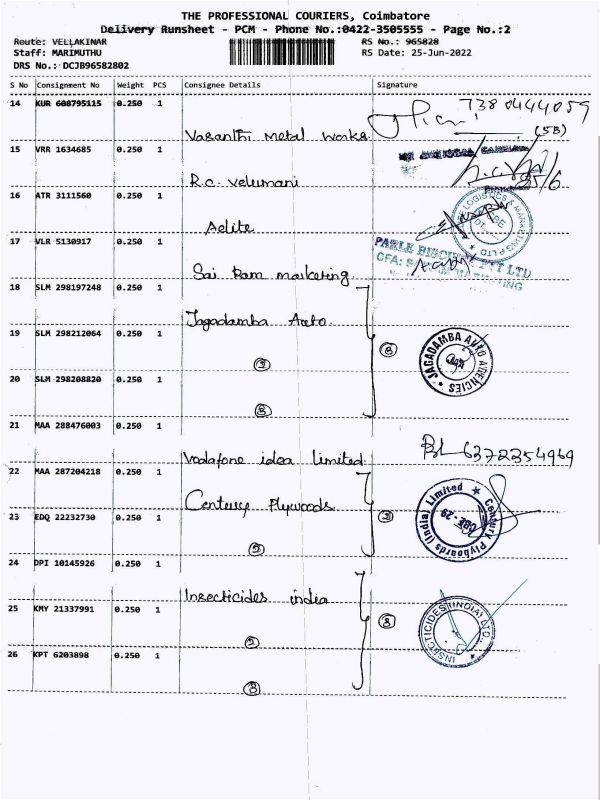 THE PROFESSIONAL COURIERS, Coimbatore
Delivery Runsheet - PCM - Phone No.:0422-3505555 - Page No.:2
Route: VELLAKINAR
RS No.: 965828
Staff: MARIMUTHU
RS Date: 25-Jun-2022
DRS No.: DCJB96582802
S No Consignment No Weight PCS Consignee Details Signature
14 KUR 608795115 0.250 1
7380444059
(5B)
Vasanthi Metal Works
15 VRR 1634685 0.250 1
25/6
R.C. Velumani
16 ATR 3111560 0.250 1
LOGISTICS & MARKETING P LTD
Aelite
17 VLR 5130917 0.250 1
PARLE BISCUITS PVT LTD
CFA:
Sai Ram marketing
18 SLM 298197248 0.250 1
Jagadamba Auto
19 SLM 298212064 0.250 1
JAGADAMBA AUTO AGENCIES
20 SLM 298208820 0.250 1
21 MAA 288476003 0.250 1
6372354969
Vodafone idea limited
22 MAA 287204218 0.250 1
Century Plywoods
Century Plyboards (India) Limited
CBE - 29
23 EDQ 22232730 0.250 1
24 DPI 10145926 0.250 1
Insecticides india
INSECTICIDES (INDIA) LTD.
25 KMY 21337991 0.250 1
26 KPT 6203898 0.250 1